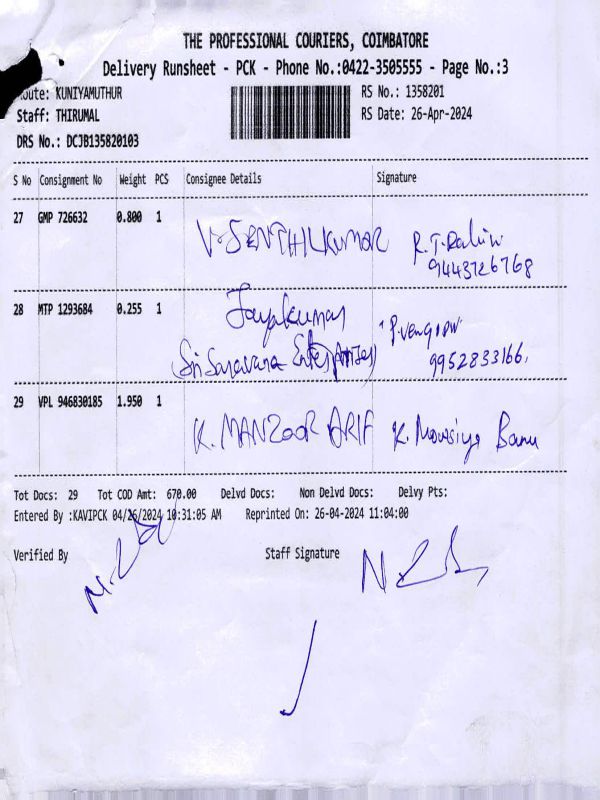 THE PROFESSIONAL COURIERS, COIMBATORE
Delivery Runsheet - PCK - Phone No.:0422-3505555 - Page No.:3
Route: KUNIYAMUTHUR RS No.: 1358201
Staff: THIRUMAL RS Date: 26-Apr-2024
DRS No.: DCJB135820103
S No Consignment No Weight PCS Consignee Details Signature
27 GMP 726632 0.800 1 V. SENTHILKUMAR R.T.
9443726768
28 MTP 1293684 0.255 1 Jayakumar
(Sri Saravana Enterprises) 9952833166
29 VPL 946830185 1.950 1 K. MANZOOR ARIF K. Banu
Tot Docs: 29 Tot COD Amt: 670.00 Delvd Docs: Non Delvd Docs: Delvy Pts:
Entered By :KAVIPCK 04/26/2024 10:31:05 AM Reprinted On: 26-04-2024 11:04:00
Verified By Staff Signature